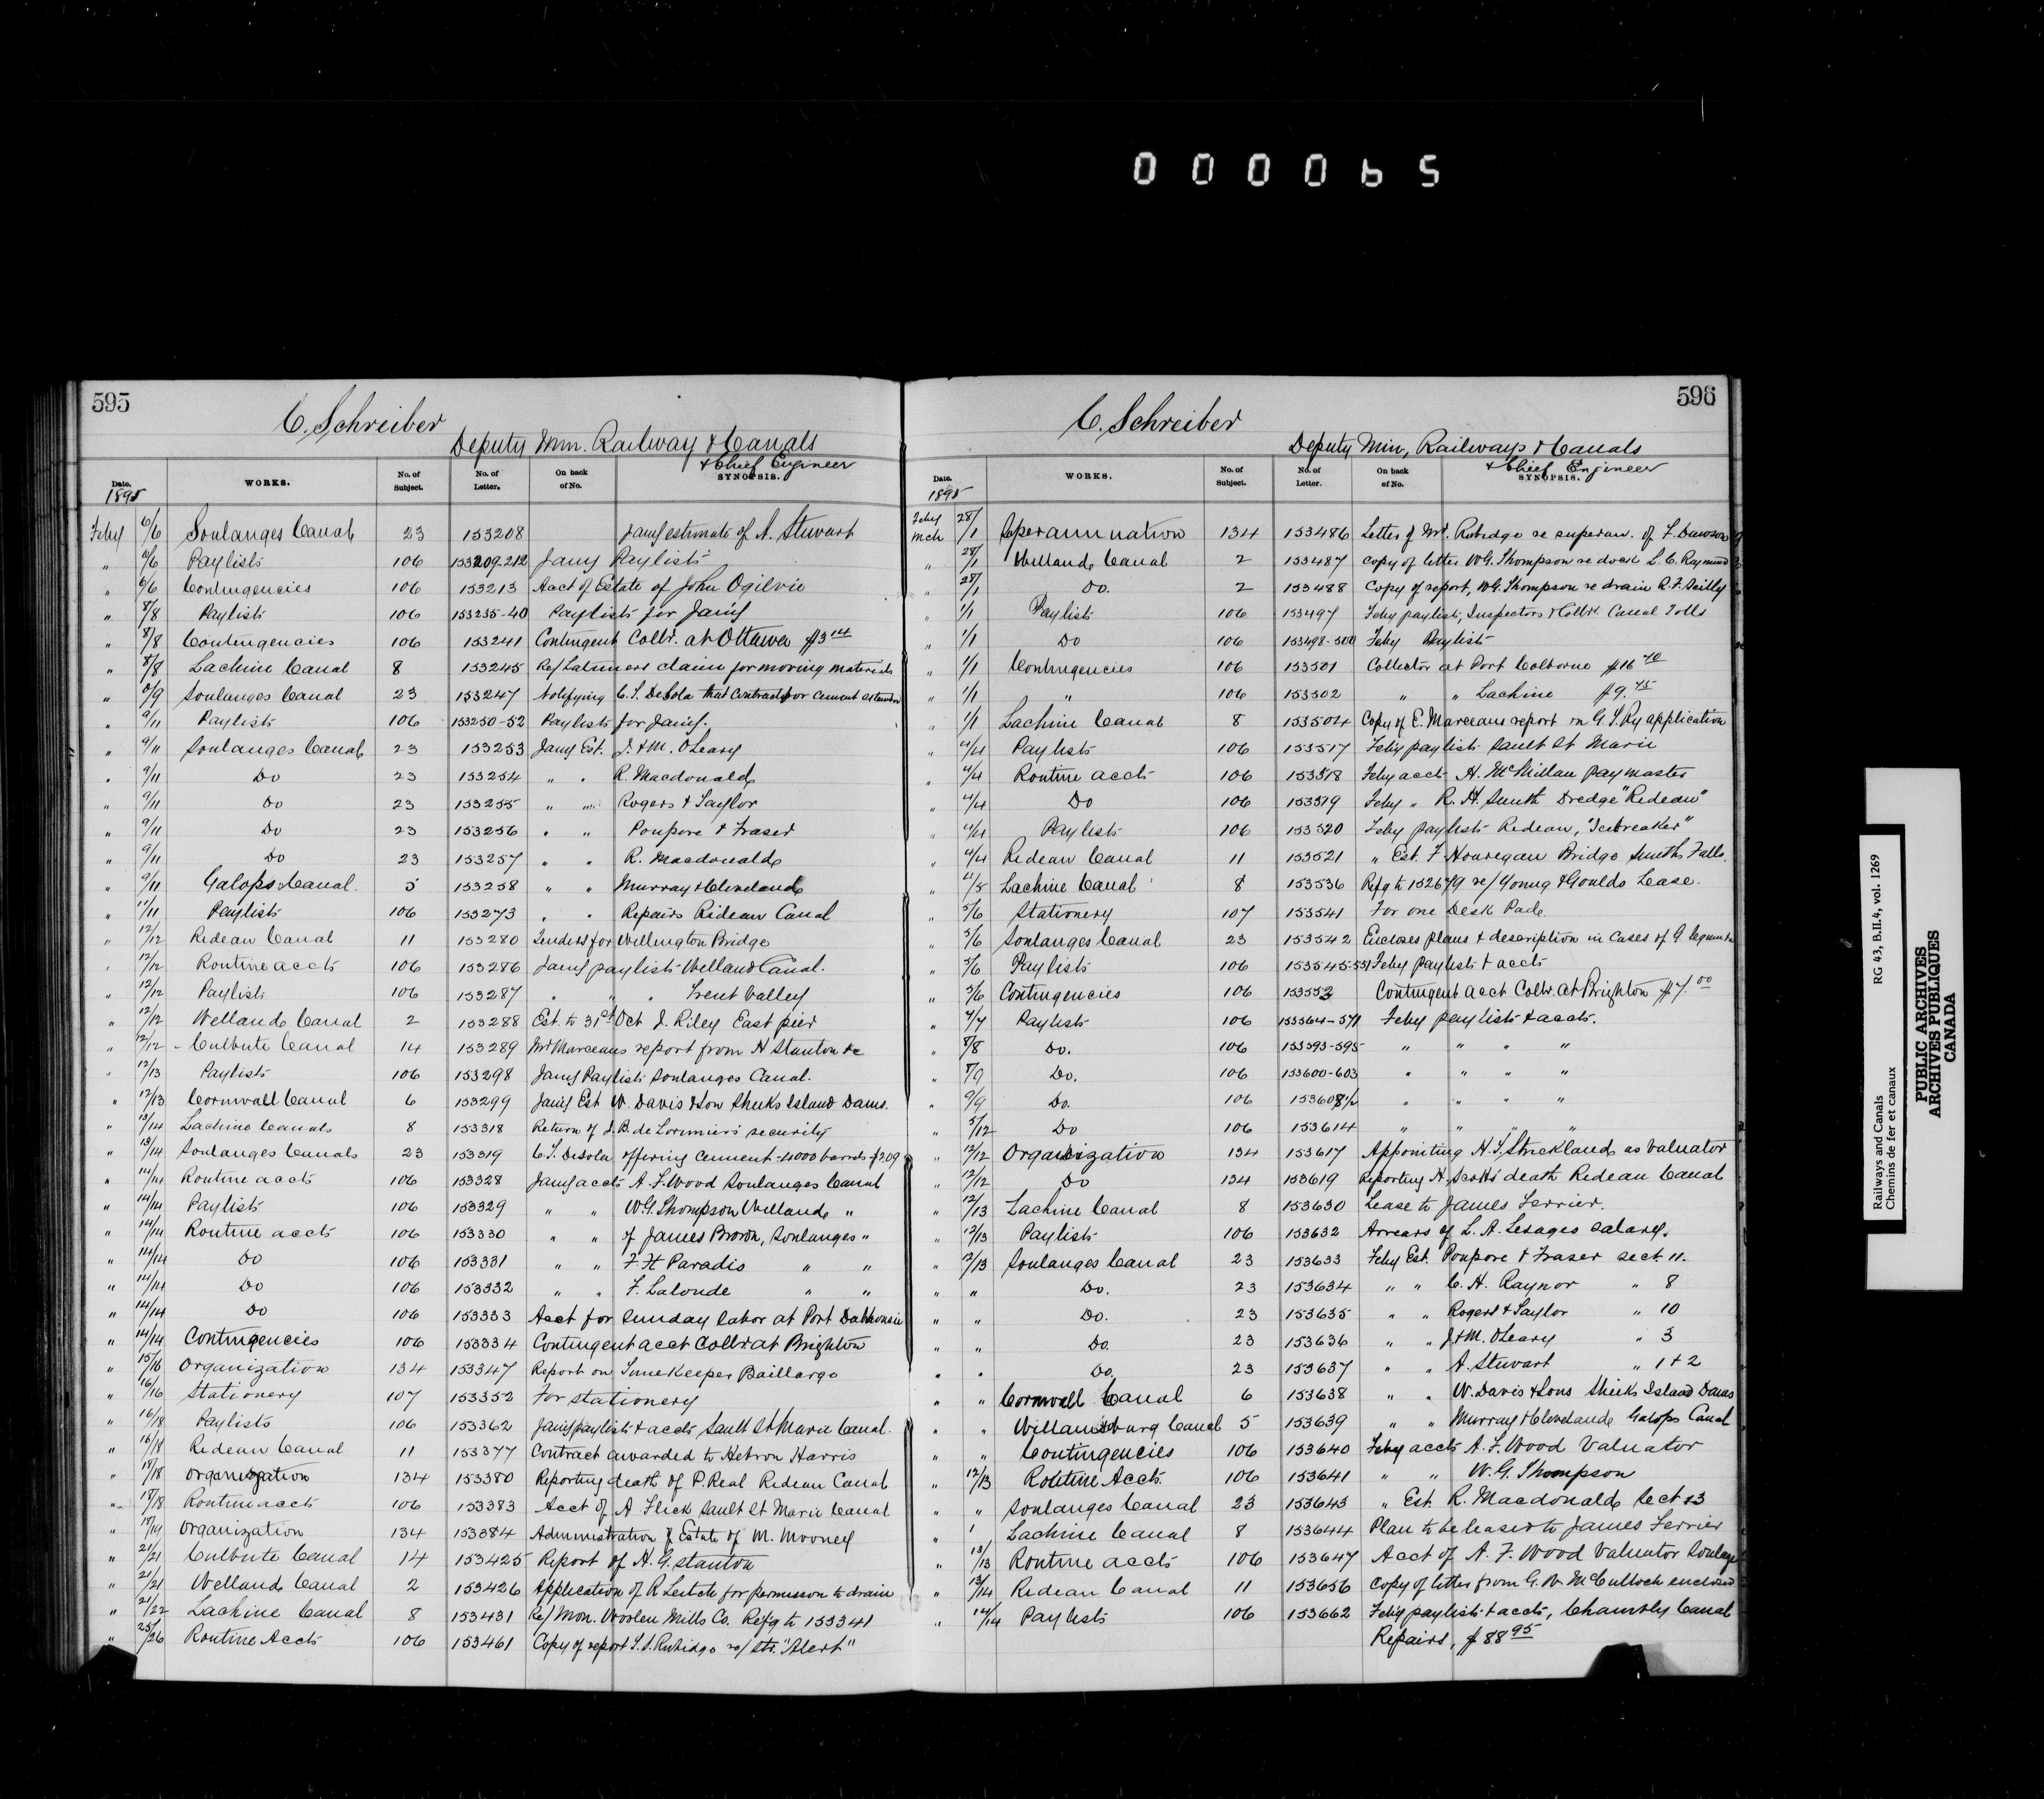 000065
595
C. Schreiber
Deputy Min. Railway & Canals
& Chief Engineer
Date. WORKS. No. of Subject. No. of Letter. On back of No. SYNOPSIS.
1895
Feby 6/6 Soulanges Canal 23 153208 Jany estimate of A. Stewart
" 6/6 Paylists 106 153209.212 Jany Paylists
" 6/6 Contingencies 106 153213 Acct of Estate of John Ogilvie
" 8/8 Paylists 106 153235-40 Paylists for Jany
" 8/8 Contingencies 106 153241 Contingent Collr. at Ottawa $3 14
" 8/8 Lachine Canal 8 153245 Re/ Latimers claim for moving materials
" 8/9 Soulanges Canal 23 153247 Notifying C. I. DeSola that Contract for Cement extended
" 9/11 Paylists 106 153250-52 Paylists for Jany.
" 9/11 Soulanges Canal 23 153253 Jany Est. J. & M. OLeary
" 9/11 Do 23 153254 " " R. Macdonald
" 9/11 Do 23 153255 " " Rogers & Taylor
" 9/11 Do 23 153256 " " Poupore & Fraser
" 9/11 Do 23 153257 " " R. Macdonald
" 9/11 Galops Canal. 5 153258 " " Murray & Cleveland
" 11/11 Paylists 106 153273 " " Repairs Rideau Canal
" 12/12 Rideau Canal 11 153280 Tenders for Wellington Bridge
" 12/12 Routine accts 106 153286 Jany paylists Welland Canal.
" 12/12 Paylists 106 153287 " " " Trent Valley
" 12/12 Welland Canal 2 153288 Est. to 31st Oct J. Riley East pier
" 12/12 - Culbute Canal 14 153289 Mr Marceaus report from H Stanton &c
" 12/13 Paylists 106 153298 Jany Paylists Soulanges Canal.
" 12/13 Cornwall Canal 6 153299 Jany Est W. Davis & Son Sheiks Island Dams.
" 13/14 Lachine Canal 8 153318 Return of J. B. de Lorimiers security
" 13/14 Soulanges Canals 23 153319 C. I. DeSola offering Cement - 4000 barrels $2.09
" 14/14 Routine accts 106 153328 Jany accts A. F. Wood Soulanges Canal
" 14/14 Paylists 106 153329 " " W. G. Thompson Welland "
" 14/14 Routine accts 106 153330 " " of James Brown, Soulanges "
" 14/14 Do 106 153331 " " F. H Paradis " "
" 14/14 Do 106 153332 " " F. Lalonde " "
" 14/14 Do 106 153333 Acct for Sunday labor at Port Dalhousie
" 14/14 Contingencies 106 153334 Contingent acct Collr at Brighton
" 15/16 Organization 134 153347 Report on Time Keeper Baillarge
" 16/16 Stationery 107 153352 For stationery
" 16/18 Paylists 106 153362 Jany paylists & accts Sault St Marie Canal.
" 16/18 Rideau Canal 11 153377 Contract awarded to Hebron Harris
" 18/18 Organization 134 153380 Reporting death of P. Real Rideau Canal
" 18/18 Routine accts 106 153383 Acct of A Flick Sault St Marie Canal
" 18/19 Organization 134 153384 Administration of Estate of M. Mooney
" 21/21 Culbute Canal 14 153425 Report of H. G. Stanton
" 21/21 Welland Canal 2 153426 Application of R Leitch for permisson to drain
" 21/22 Lachine Canal 8 153431 Re/ Mon. Woolen Mills Co. Refg to 153341
" 25/26 Routine Accts 106 153461 Copy of report T. S. Rubidge re/ Str. "Alert"
596
C. Schreiber
Deputy Min, Railways & Canals
& Chief Engineer
Date. WORKS. No. of Subject. No. of Letter. On back of No. SYNOPSIS.
1895
Feby Mch 28/1 Superannuation 134 153486 Letter of Mr. Rubidge re superan. of F. Dawson
" 28/1 Welland Canal 2 153487 copy of letter W. G. Thompson re dock L. C. Raymond
" 28/1 Do. 2 153488 Copy of report, W. G. Thompson re drain R. F. Reilly
" 1/1 Paylists 106 153497 Feby paylist; Inspectors & Collr. Canal Tolls
" 1/1 Do 106 153498-500 Feby Paylists
" 1/1 Contingencies 106 153501 Collector at Port Colborne $16 40
" 1/1 " 106 153502 " " Lachine $9. 45
" 1/1 Lachine Canal 8 153504 Copy of E. Marceaus report on G. T. Ry application
" 4/4 Paylists 106 153517 Feby paylists Sault St Marie
" 4/4 Routine accts 106 153518 Feby accts H. McMillan paymaster
" 4/4 Do 106 153519 Feby " R. H. Smith Dredge "Rideau"
" 4/4 Paylists 106 153520 Feby paylists Rideau, "Icebreaker"
" 4/4 Rideau Canal 11 153521 " Est. F Hourigan Bridge Smiths Falls.
" 4/5 Lachine Canal 8 153536 Refg to 152679 re/ Young & Goulds Lease.
" 5/6 Stationery 107 153541 For one Desk Pad
" 5/6 Soulanges Canal 23 153542 Encloses plans & description in Cases of G.
" 5/6 Paylists 106 153545-551 Feby Paylists & accts
" 5/6 Contingencies 106 153553 Contingent acct Collr. at Brighton $7. 00
" 4/7 Paylists 106 153564-571 Feby paylists & accts.
" 8/8 Do. 106 153593-595 " " " "
" 8/9 Do. 106 153600-603 " " " "
" 9/9 Do. 106 153608 1/2 " " " "
" 5/12 Do 106 153614 " " "
" 12/12 Organization 134 153617 Appointing H. T. Strickland as Valuator
" 12/12 Do 134 153619 Reporting H. Scotts death Rideau Canal
" 12/13 Lachine Canal 8 153630 Lease to James Ferrier.
" 12/13 Paylists 106 153632 Arrears of L. A. Lesages salary.
" 12/13 Soulanges Canal 23 153633 Feby Est. Poupore & Fraser sect. 11.
" " Do. 23 153634 " " C. H. Raynor " 8
" " Do. 23 153635 " " Rogers & Taylor " 10
" " Do. 23 153636 " " J & M. OLeary " 3
" " Do. 23 153637 " " A. Stewart " 1 & 2
" " Cornwall Canal 6 153638 " " W. Davis & Sons Sheiks Island Dams
" " Williamsburg Canal 5 153639 " " Murray & Cleveland Galops Canal
" " Contingencies 106 153640 Feby accts A. F. Wood Valuator
" 12/13 Routine Accts. 106 153641 " " W. G. Thompson
" " Soulanges Canal 23 153643 " Est. R. Macdonald Sect 13
" Lachine Canal 8 153644 Plan to be leased to James Ferrier
" 13/13 Routine accts 106 153647 Acct of A. F. Wood Valuator Soulanges
" 13/14 Rideau Canal 11 153656 copy of letter from G. W. McCulloch enclosed
" 14/14 Paylists 106 153662 Feby paylists & accts, Chambly Canal
Repairs, $88 95
Railways and Canals RG 43, B.II.4, vol. 1269
Chemins de fer et canaux
PUBLIC ARCHIVES
ARCHIVES PUBLIQUES
CANADA